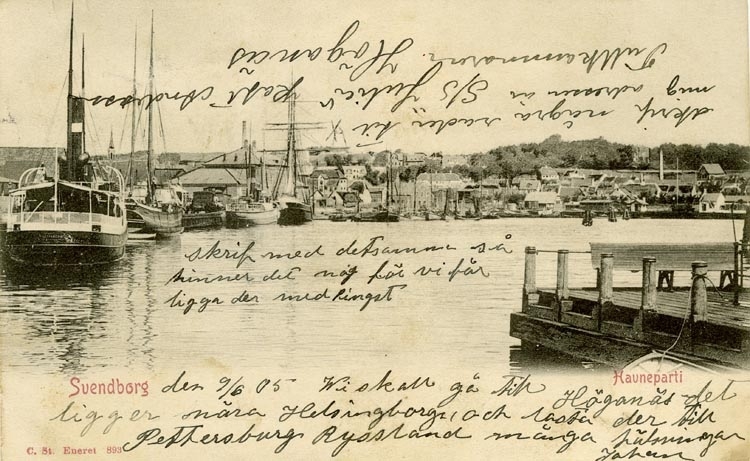 skrif med detsamma så
hinner det nog för vi får
ligga der med Pingst
Svendborg
Havneparti
den 9/6 05 Wi skall gå till Höganäs det
ligger nära Helsingborg, och lasta der till
Pettersburg Ryssland många hälsningar
Johan
C. St. Eneret 893
skrif några rader till
mig adressen är S/S "Julia"
Tullkammaren Höganäs